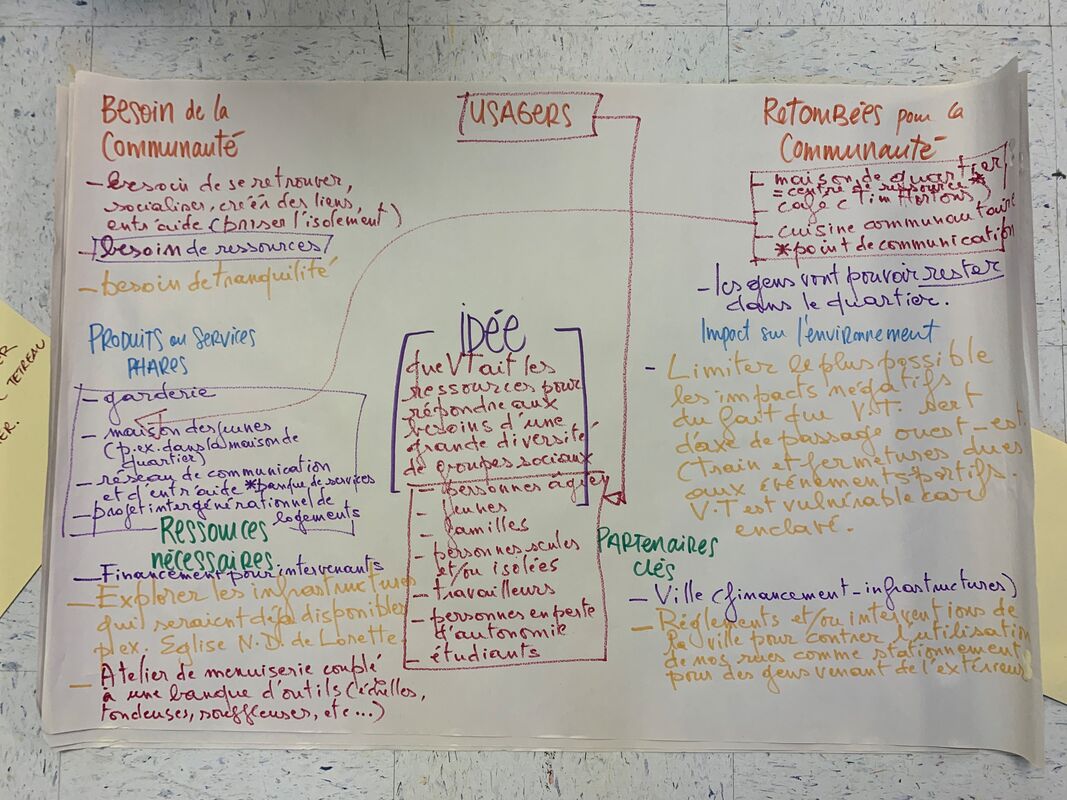 Besoin de la
Communauté
- besoin de se retrouver,
socialiser, créer des liens,
entr'aide (briser l'isolement)
- besoin de ressources
- besoin de tranquilité
USAGERS
Retombées pour la
Communauté
- maison de quartier
= centre de ressources *
- café (Tim Hortons,
- cuisine communautaire
* point de communication
- les gens vont pouvoir rester
dans le quartier.
PRODUITS ou SERVICES
PHARES
- garderie
- maison des jeunes
(p.ex. dans la maison de
quartier)
- réseau de communication
et d'entr'aide *banque de services
- projet intergénérationnel de
logements
IDÉE
que VT ait les
ressources pour
répondre aux
besoins d'une
grande diversité
de groupes sociaux
- personnes agées
- jeunes
- familles
- personnes seules
et/ou isolées
- travailleurs
- personnes en perte
d'autonomie
- étudiants
Impact sur l'environnement
- Limiter le plus possible
les impacts négatifs
du fait que V.T. sert
d'axe de passage ouest-est
(train et fermetures dues
aux événements sportifs.
V.T est vulnérable car
enclavé.
Ressources
nécessaires.
- Financement pour intervenants
- Explorer les infrastructures
qui seraient déjà disponibles
p.ex. Eglise N.D. de Lorette
- Atelier de menuiserie couplé
à une banque d'outils (échelles,
tondeuses, souffleuses, etc...)
PARTENAIRES
clés
- Ville (financement - infrastructures)
- Réglements et/ou interventions de
la ville pour contrer l'utilisation
de nos rues comme stationnement
pour des gens venant de l'extérieur
TETREAU